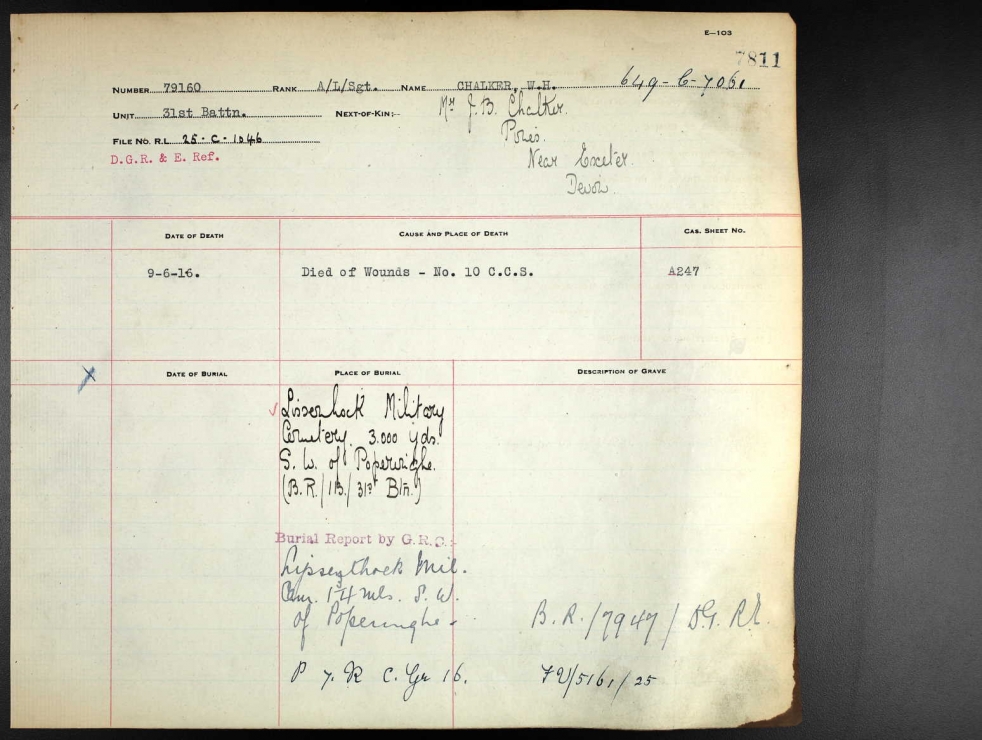 E—103
7811
NUMBER 79160 RANK A/L/Sgt. NAME CHALKER, W.H. 649-C-7061
UNIT 31st Battn. NEXT-OF-KIN:- Mr J. B. Chalker.
FILE NO. R.L. 25-C-1046
D.G.R. & E. Ref.
Near Exeter.
Devon.
DATE OF DEATH CAUSE AND PLACE OF DEATH CAS. SHEET NO.
9-6-16. Died of Wounds - No. 10 C.C.S. A247
DATE OF BURIAL PLACE OF BURIAL DESCRIPTION OF GRAVE
Lissenhock Military
Cemetery. 3.000 yds.
S. W. of Poperinghe.
(B.R./1B./31st Btn.)
Burial Report by G.R.C.:-
Lijssenthoek Mil.
Cem. 1 3/4 mls. S. W.
of Poperinghe -
B. R. /7947/
P 7. R C. Gr 16. /5161/25